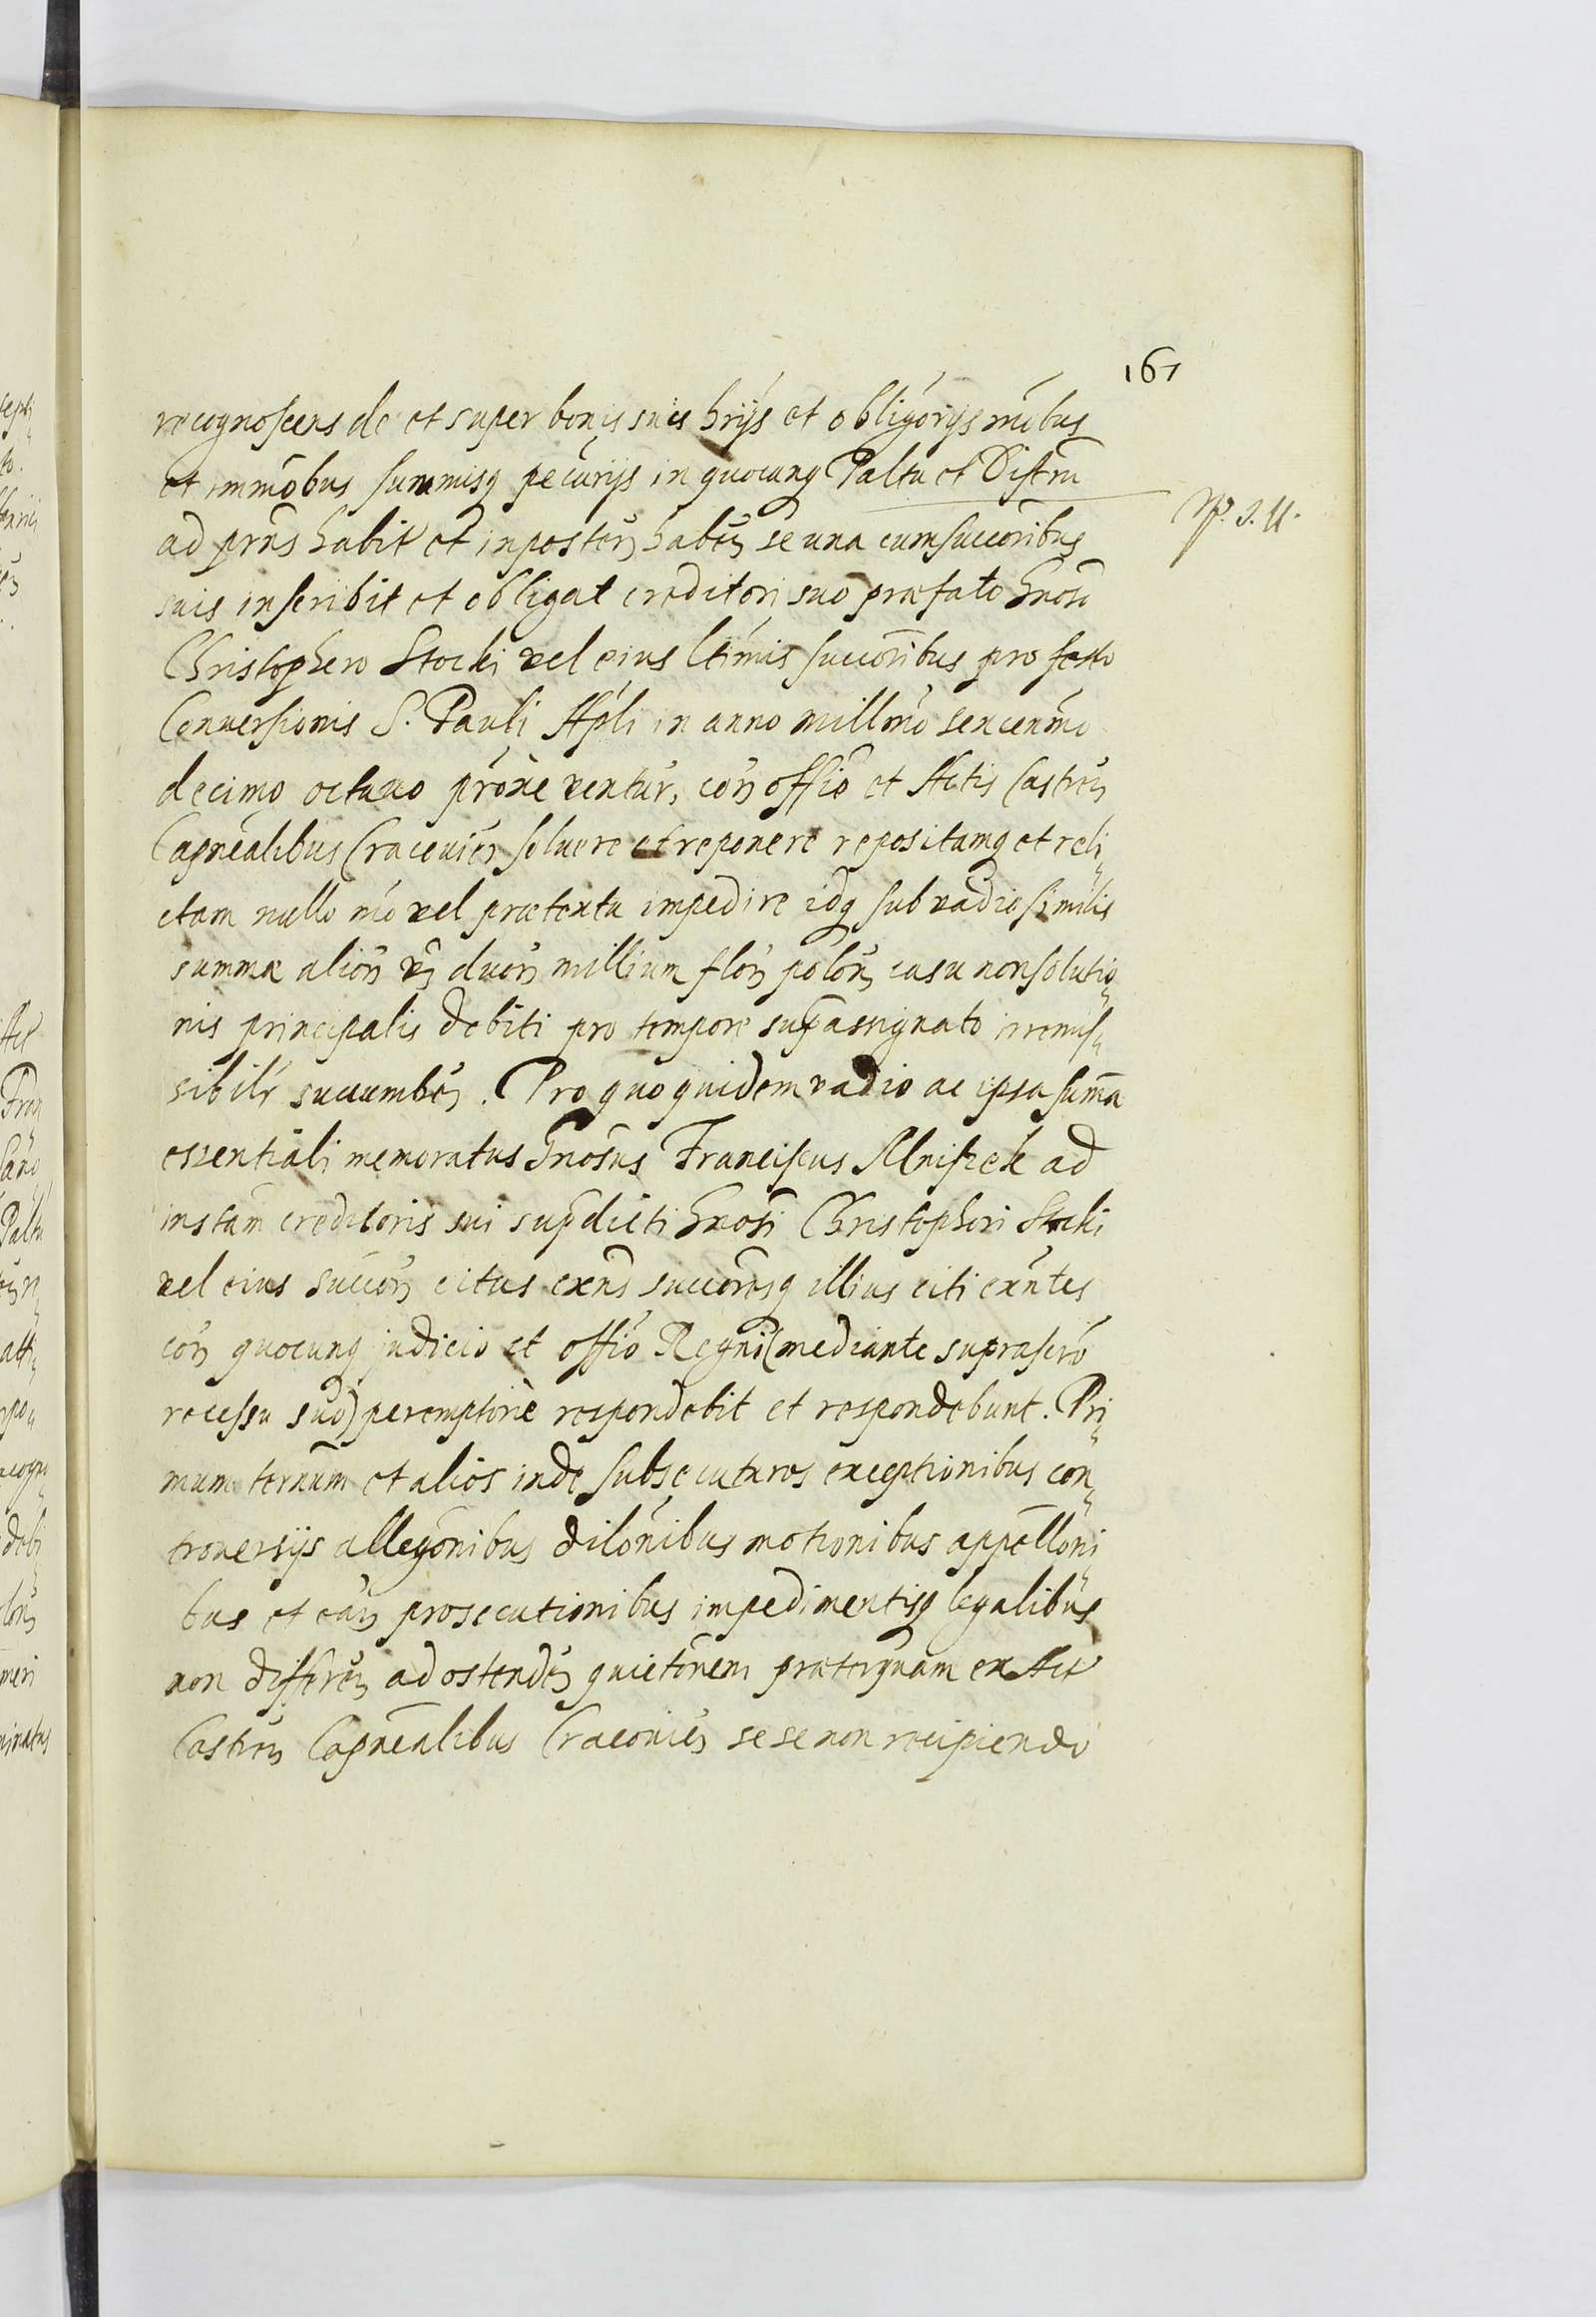 161
recognoscens de et super bonis suis hrijs et obligorijs mobus
et immobus summisq pecurijs in quocunq Paltu et Distru
ad prns habit et inposter habe se una cum succoribus
suis inscribit et obligat creditori suo præfato Gnoso
Christophero Stocki vel eius ltimis succoribus pro festo
Conversionis S. Pauli Apli in anno millmo sexcenmo
decimo octavo proxe ventur, cor offio et Actis Castren
Capnealibus Cracovien solvere et reponere repositamq et reli
ctam nullo mo vel prætextu impedire idq sub vadio similis
summæ alior duor millium flor polor casu non solutio
nis principalis debiti pro tempore supra assignato irremis
sibilr succumben. Pro quo quidem vadio ac ipsa summa
essentiali memoratus Gnosus Franciscus Mniszek ad
instam creditoris sui supradicti Gnosi Christopheri Stocki
vel eius succor citus exns succoresq illius citi exntes
cor quocunq judicio et offio Regni (mediante suprascro
recessu suo) peremptorie respondebit et respondebunt. Pri
mum ternum et alios inde subsecuturos exceptionibus con
troversijs allegonibus dilonibus motionibus appelloni
bus et ear prosecutionibus impedimentisq legalibus
non differen ad ostenden quietonem præterquam ex Act
Castren Capnealibus Cracovien sese non recipiendo